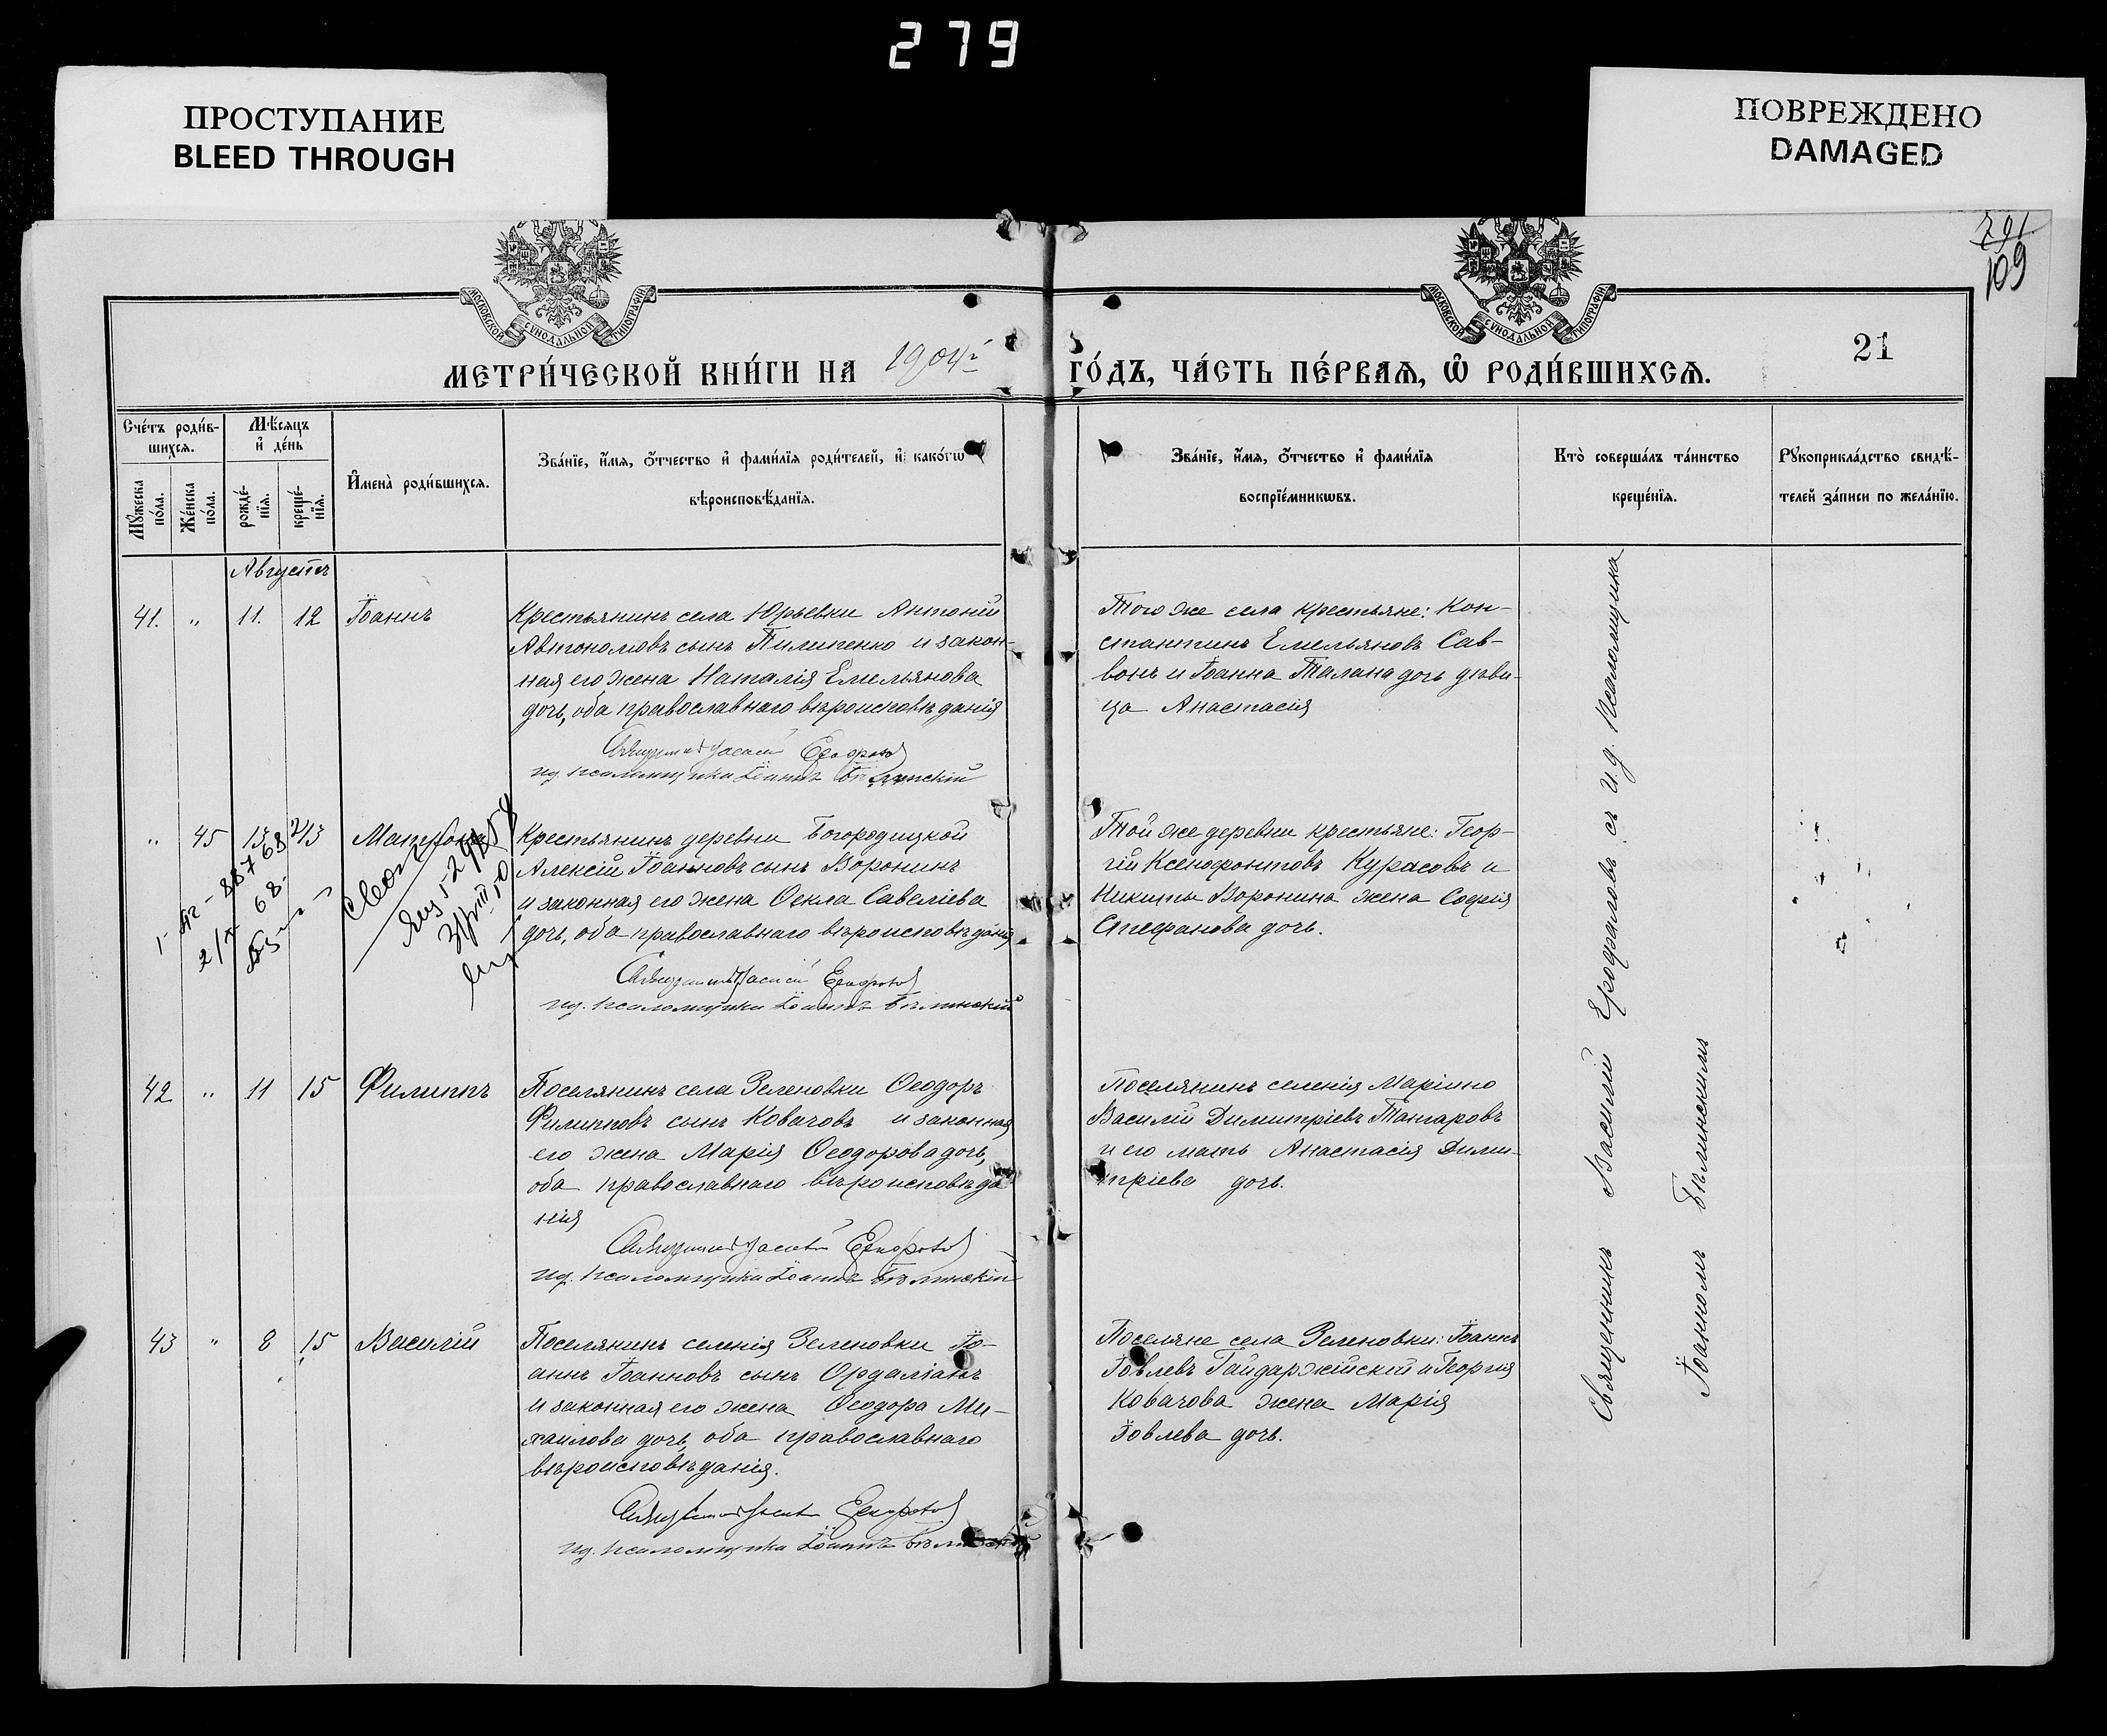 279
ПРОСТУПАНИЕ
BLEED THROUGH
ПОВРЕЖДЕНО
DAMAGED
291
109
МОСКОВСКОЙ СѴНОДАЛЬНОЙ ТИПОГРАФІИ
МОСКОВСКОЙ СѴНОДАЛЬНОЙ ТИПОГРАФІИ
21
МЕТРИ́ЧЕСКОЙ КНИ́ГИ НА 1904й ГО́ДЪ, ЧА́СТЬ ПЕ́РВАѦ, Ѽ РОДИ́ВШИХСѦ.
Сче́тъ роди́в-
шихсѧ.
Мꙋ́жеска
по́ла.
Же́нска
по́ла.
Мѣ́сѧцъ
и҆ де́нь
рожде́-
нїѧ.
креще́-
нїѧ.
И҆мена̀ роди́вшихсѧ.
Зва́нїе, и҆́мѧ, ѻ҆́тчество и҆ фами́лїѧ роди́телей, и҆ како́гѡ
вѣроисповѣ́данїѧ.
Зва́нїе, и҆́мѧ, ѻ҆́тчество и҆ фами́лїѧ
воспрїе́мникѡвъ.
Кто̀ соверша́лъ та́инство
креще́нїѧ.
Рꙋкоприкла́дство свидѣ́-
телей за́писи по жела́нїю.
Августъ
41. " 11. 12 Іоаннъ
Крестьянинъ села Юрьевки Антоній
Автономовъ сынъ Пилипенко и закон-
ная его жена Наталія Емельянова
дочь, оба православнаго вѣроисповѣданія
Священникъ Василій
ид. псаломщика Іоаннъ Бѣлинскій
Того же села крестьяне: Кон-
стантинъ Емельяновъ Сав-
вонъ и Іоанна Талана дочь дѣви-
ца Анастасія
" 45 13 Матрона
Крестьянинъ деревни Богородицкой
Алексій Іоанновъ сынъ Воронинъ
и законная его жена Ѳекла Савеліева
дочь, оба православнаго вѣроисповѣданія
Священникъ Василій
ид. псаломщика Іоаннъ Бѣлинскій
Той же деревни крестьяне: Геор-
гій Ксенофонтовъ Курасовъ и
Никиты Воронина жена Софія
Стефанова дочь.
42 " 11 15 Филиппъ
Поселянинъ села Зеленовки Ѳеодоръ
Филипповъ сынъ Ковачовъ и законная
его жена Марія Ѳеодорова дочь,
оба православнаго вѣроисповѣда
нія
Священникъ Василій
ид. псаломщика Іоаннъ Бѣлинскій
Поселянинъ селенія Маріино
Василій Димитріевъ Татаровъ
и его мать Анастасія Дими-
тріева дочь.
43 " 8 15 Василій
Поселянинъ селенія Зеленовки Іо-
аннъ Іоанновъ сынъ
и законная его жена Ѳеодора Ми-
хаилова дочь, оба православнаго
вѣроисповѣданія.
Священникъ Василій
ид. псаломщика Іоаннъ
Поселяне села Зеленовки: Іоаннъ
Іовлевъ Гайдаржійскій и Георгія
Ковачова жена Марія
Іовлева дочь.
Священникъ Василій с и.д. псаломщика
Іоанномъ Бѣлинскимъ